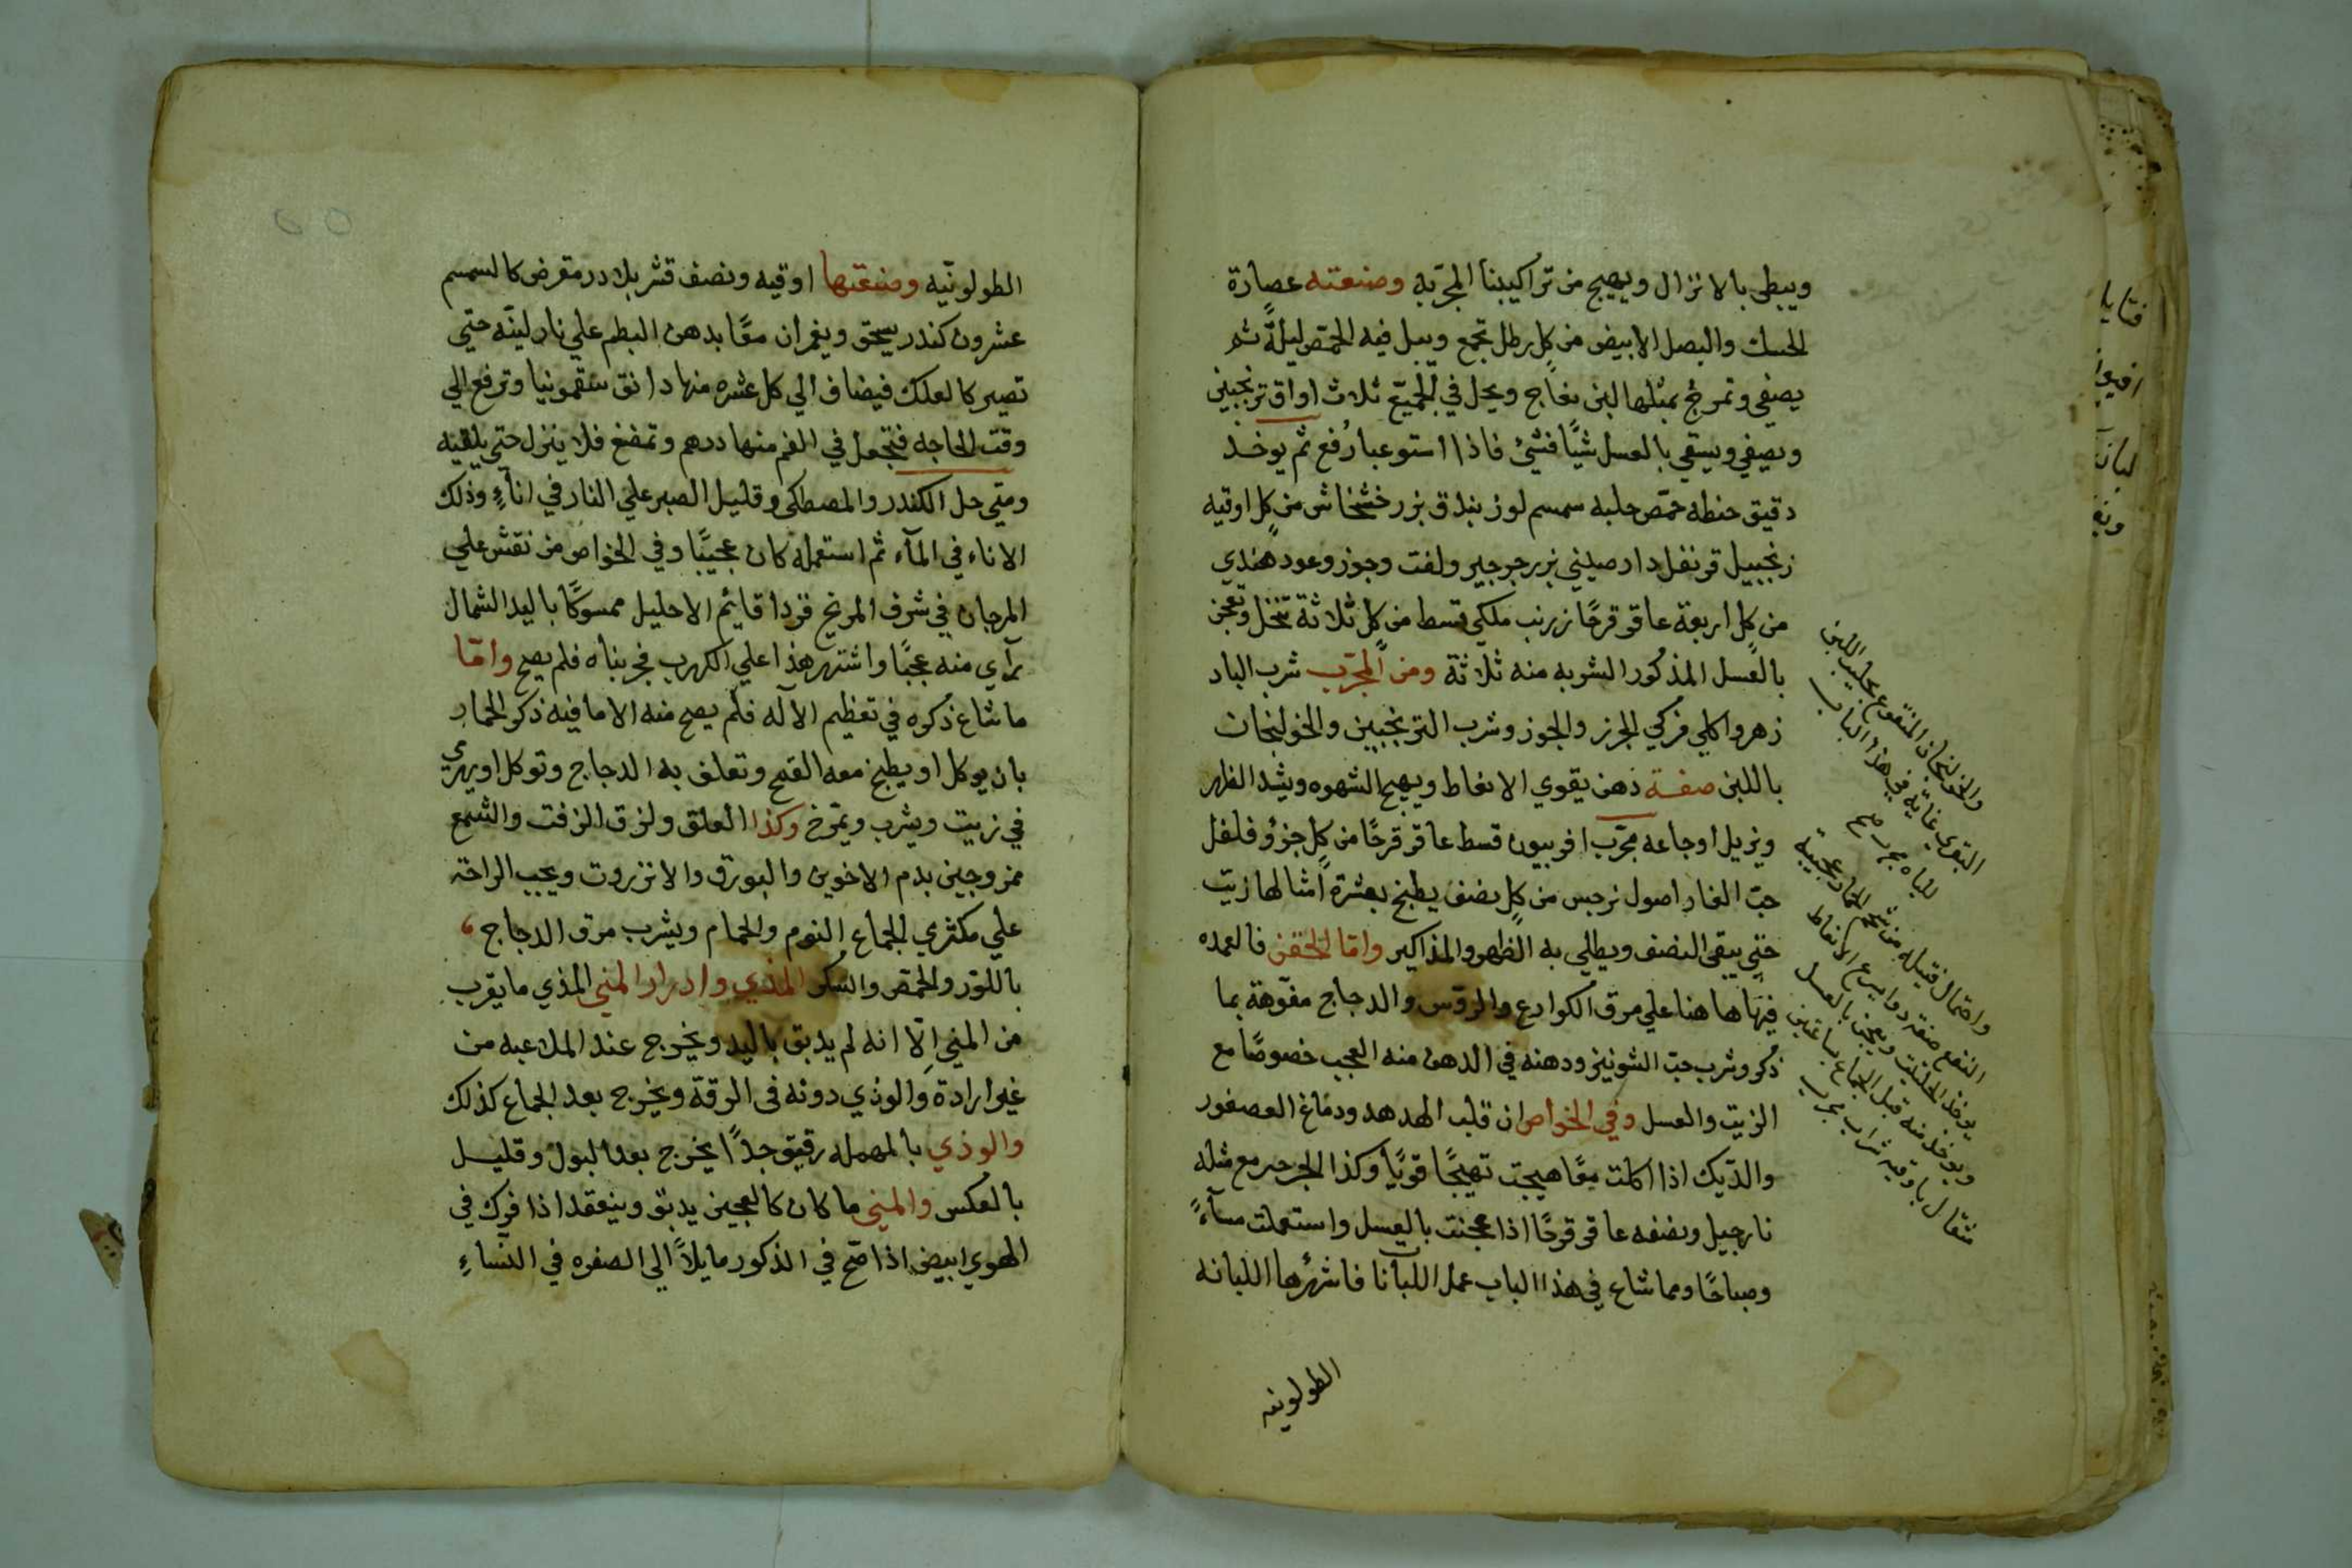 ويبطي بالانزال ويهيج من تراكيبنا المجربه وصنعته عصارة
الحسك والبصل الابيض من كل رطل تجمع ويبل فيه الحمص ليلةً ثم
يصفي وتمرخ بمثلها لبن نعاج ويحل في الجميع ثلاث اواق ترنجبين
وبصفي ويسقي بالعسل شيًا فشئ فاذا استوعبا رُفع ثم يوخد
دقيق حنطه حمّص حلبه سمسم لوز بندق بزر خشخاش من كل اوقيه
زنجبيل قرنفل دارصيني بزر جرجير ولفت وجوز وعود هندي
من كل اربعة عاقر قرحًا زرنب ملكي قسط من كل ثلاثة تنخل وتعجن
بالعسل المذكور الشوبه منه ثلاثة ومن المجرّب شرب الباد
زهر واكلي فركي الجزر والجوز وشرب الترنجبين والخولنجان
باللبن صفة دهن يقوي الانعاط ويهيج الشهوه ويشد الظهر
ويزيل اوجاعه مجرّب افربيون قسط عاقر قرحًا من كل جزؤ فلفل
حبّ الغار اصول نرجس من كل نصف يطبخ بعشرة امثالها زيت
حتي يبقي النصف ويطلي به الظهر والمذاكير وامّا الحقن فالعمده
فيها هاهنا علي مرق الكوارع والروّس والدجاج مفوّهة بما
ذكر وشرب حبّ الشونيز ودهنه في الدهن منه العجب خصوصًا مع
الزيت والعسل وفي الخواص ان قلب الهدهد ودماغ العصفور
والدّيك اذا اكلت معًا هيجت تهيجًا قويًا وكذا الجرجير مع مثله
نارجيل ونصفه عاقر قرحًا اذا عجنت بالعسل واستعملت مسآءً
وصباحًا ومما شاع في هذا الباب عمل اللبانا فاشهرها اللبانه
الطولونيه
والخولنجان المنقوع بحليب اللبن
التقوي غايه في هذا الباب
للباه مجرب صح
واحتمال فتيله من شحم الحمار عجيبة
النفع صفة دوا يسرع الانعاط
يوخذ الحلتيت ويعجن بالعسل
ويوخذ منه قبل الجماع بساعتين
مثقال باوقيه شراب مجرب
الطولونّيه وصنعتها اوقيه ونصف قشر بلادر مقرض كالسمسم
عشرون كندر يسحق ويغمران معًا بدهن البطم علي نار لينّه حتي
تصير كالعلك فيضاف الي كل عشره منها دانق سقمونيا وترفع الي
وقت الحاجه فتجعل في الفم منها درهم وتمضغ فلا ينزل حتي يلقيه
ومتي حل الكندر والمصطكي وقليل الصبر علي النار في انآءٍ وذلك
الاناء في المآء ثم استعمله كان عجيبًا وفي الخواص من نقش علي
المرجان في شرف المريخ قردا قايم الاحليل ممسوكًا باليد الشمال
رآي منه عجبًا واشتهر هذا علي الكهرب فجربناه فلم يصح وامّا
ما شاع ذكره في تعظيم الآله فلم يصح منه الا ما فيه ذكر الحمار
بان يوكل او يطبخ معه القمح وتعلف به الدجاج وتوكل او يهري
في زيت ويشرب ويمّرخ وكذا العلق ولزق الزفت والشمع
ممزوجين بدم الاخوين والبورق والانزروت ويجب الراحة
علي مكثري الجماع النوم والحمام ويشرب مرق الدجاج
باللوز والحمص والسكر المذي وادرار المني المذي ما يقرب
من المني الّا انه لم يدبق باليد ويخرج عند الملاعبه من
غير ارادة والوذي دونه في الرقة ويخرج بعد الجماع كذلك
والوذي بالمهمله رقيق جداً يخرج بعد البول وقليل
بالعكس والمني ما كان كالعجين يدبق وينعقد اذا فرك في
الهوي ابيض اذا صّح في الذكور مايلاً الي الصفره في النساءِ